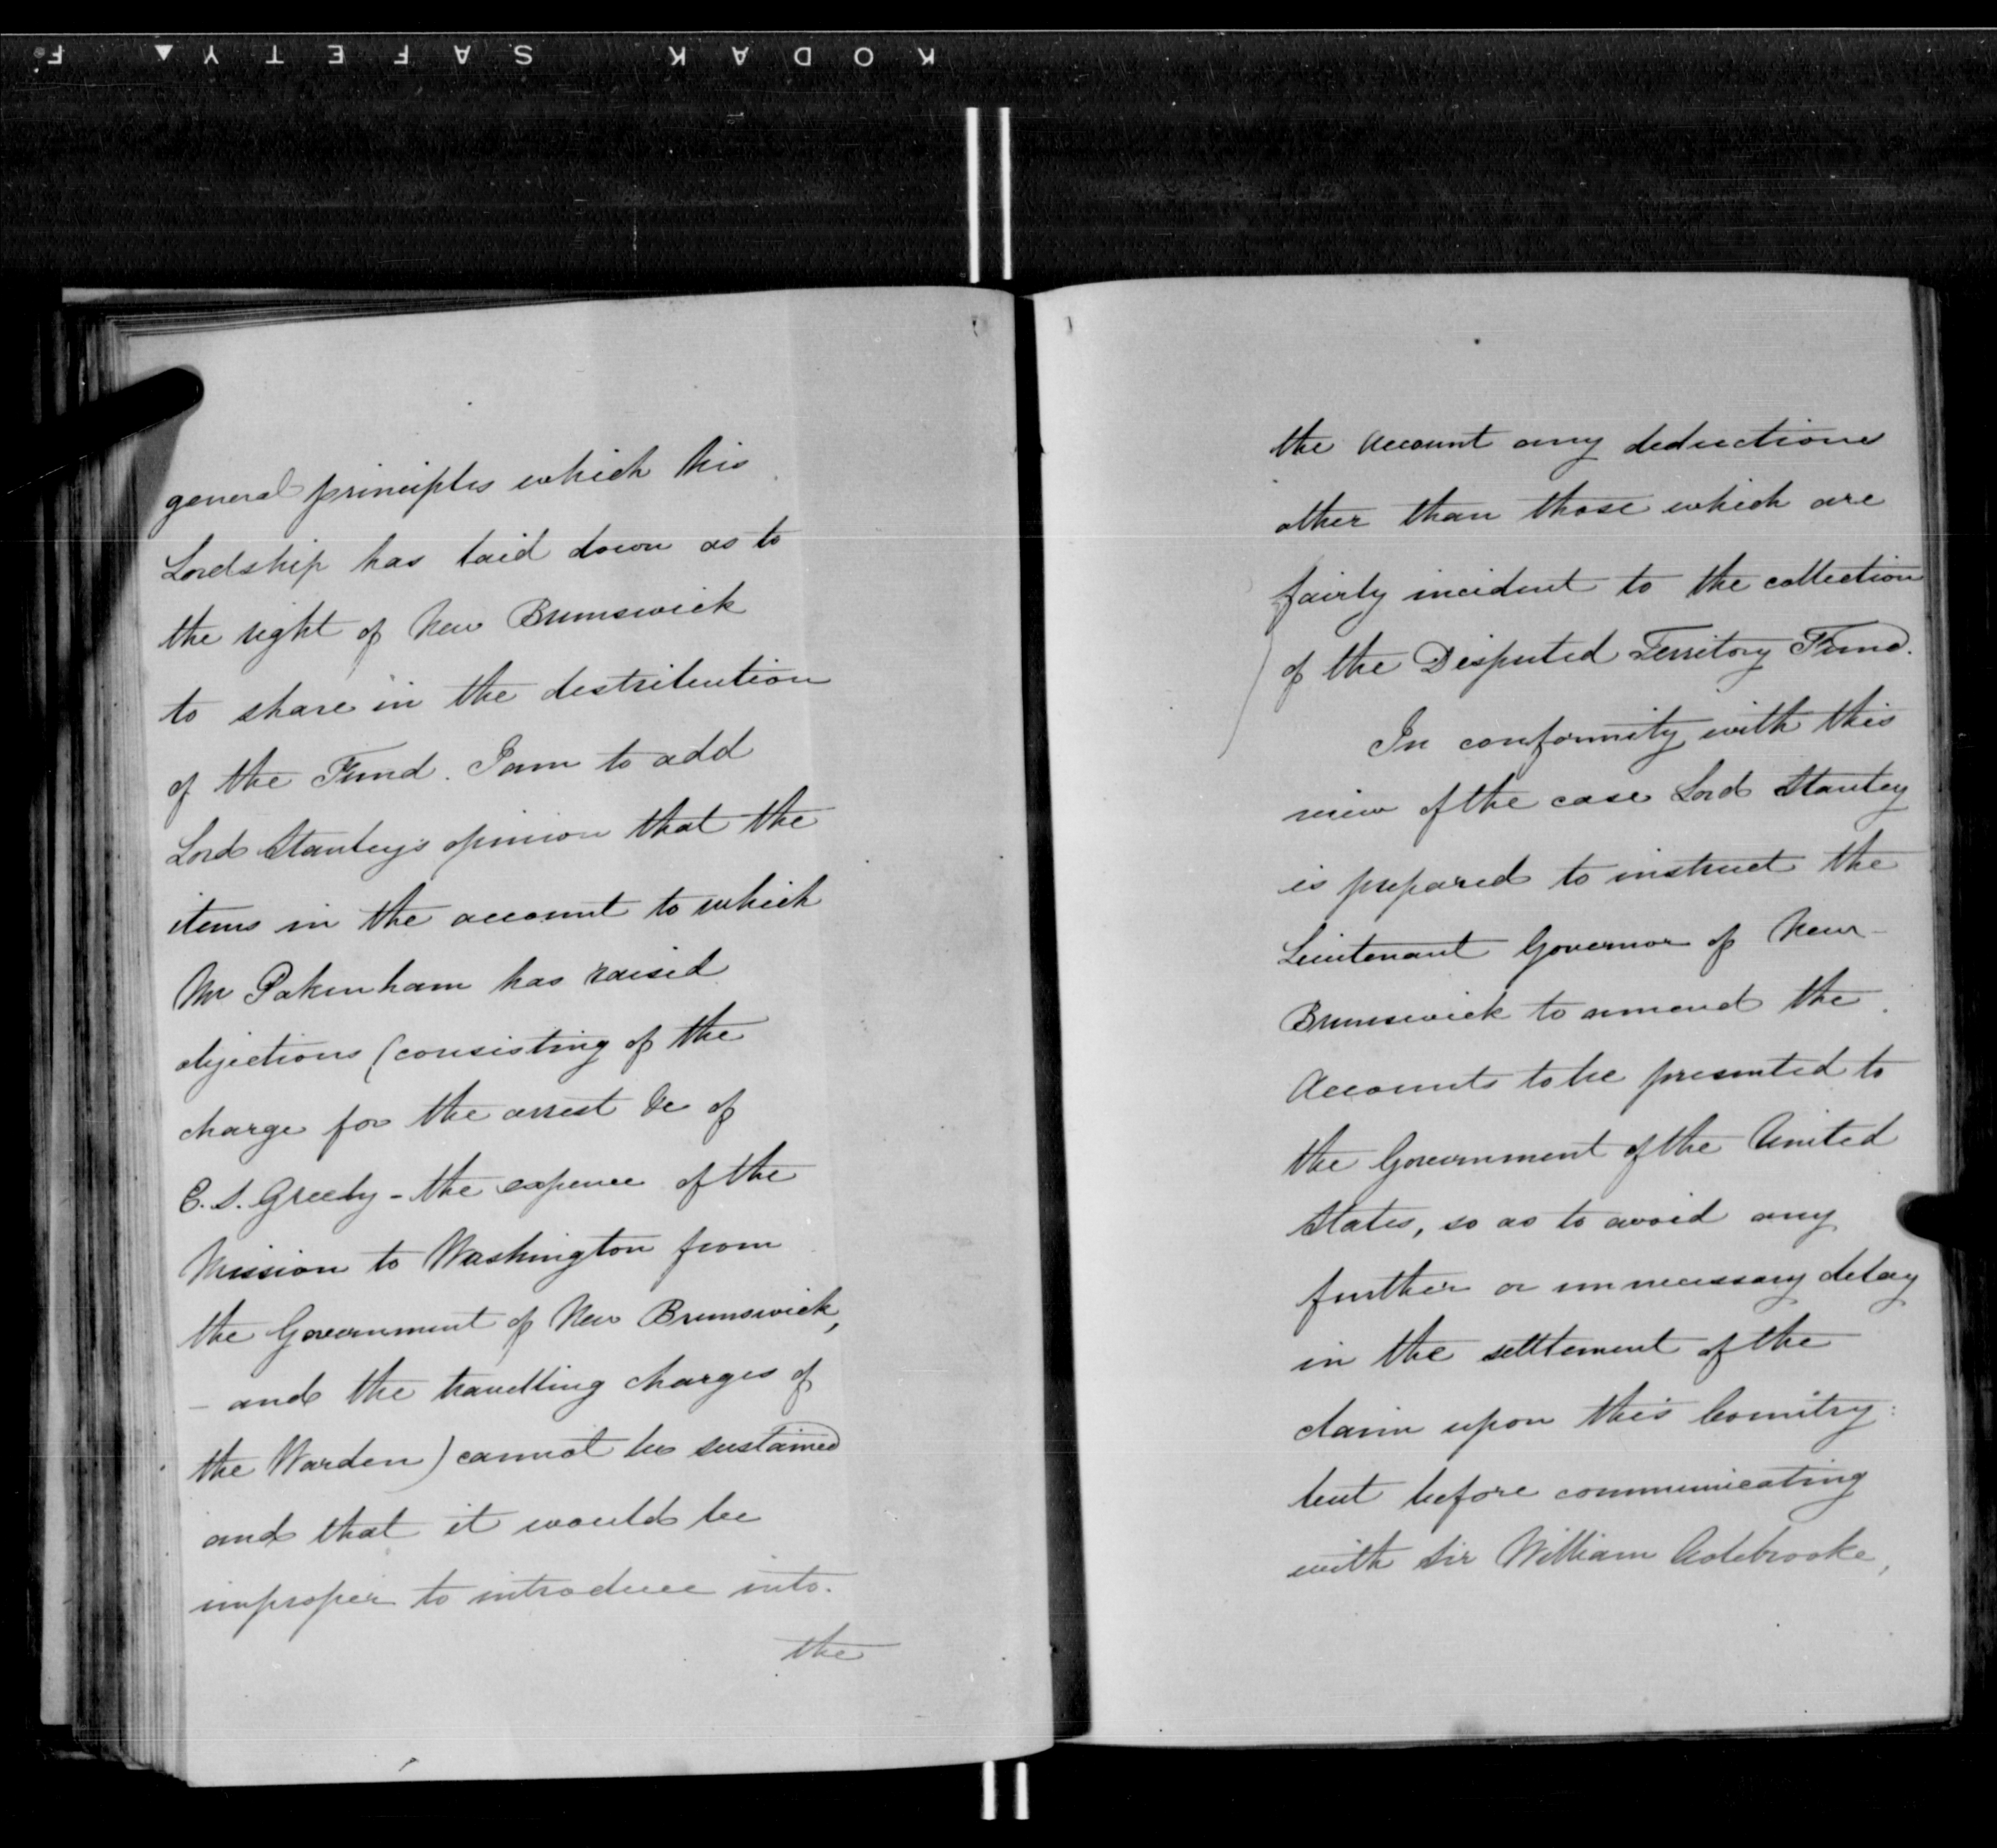 KODAK SAFETY F
general principles which his
Lordship has laid down as to
the right of New Brunswick
to share in the distribution
of the Fund. I am to add
Lord Stanley's opinion that the
items in the account to which
Mr Pakenham has raised
objections (consisting of the
charge for the arrest &c of
E. S. Greely - the expence of the
Mission to Washington from
the Government of New Brunswick,
- and the travelling charges of
the Warden) cannot be sustained
and that it would be
improper to introduce into
the
the Account any deductions
other than those which are
fairly incident to the collection
of the Disputed Territory Fund.
In conformity with this
view of the case Lord Stanley
is prepared to instruct the
Lieutenant Governor of New
Brunswick to amend the
Accounts to be presented to
the Government of the United
States, so as to avoid any
further or unnecessary delay
in the settlement of the
claim upon this Country:
but before communicating
with Sir William Colebrooke,